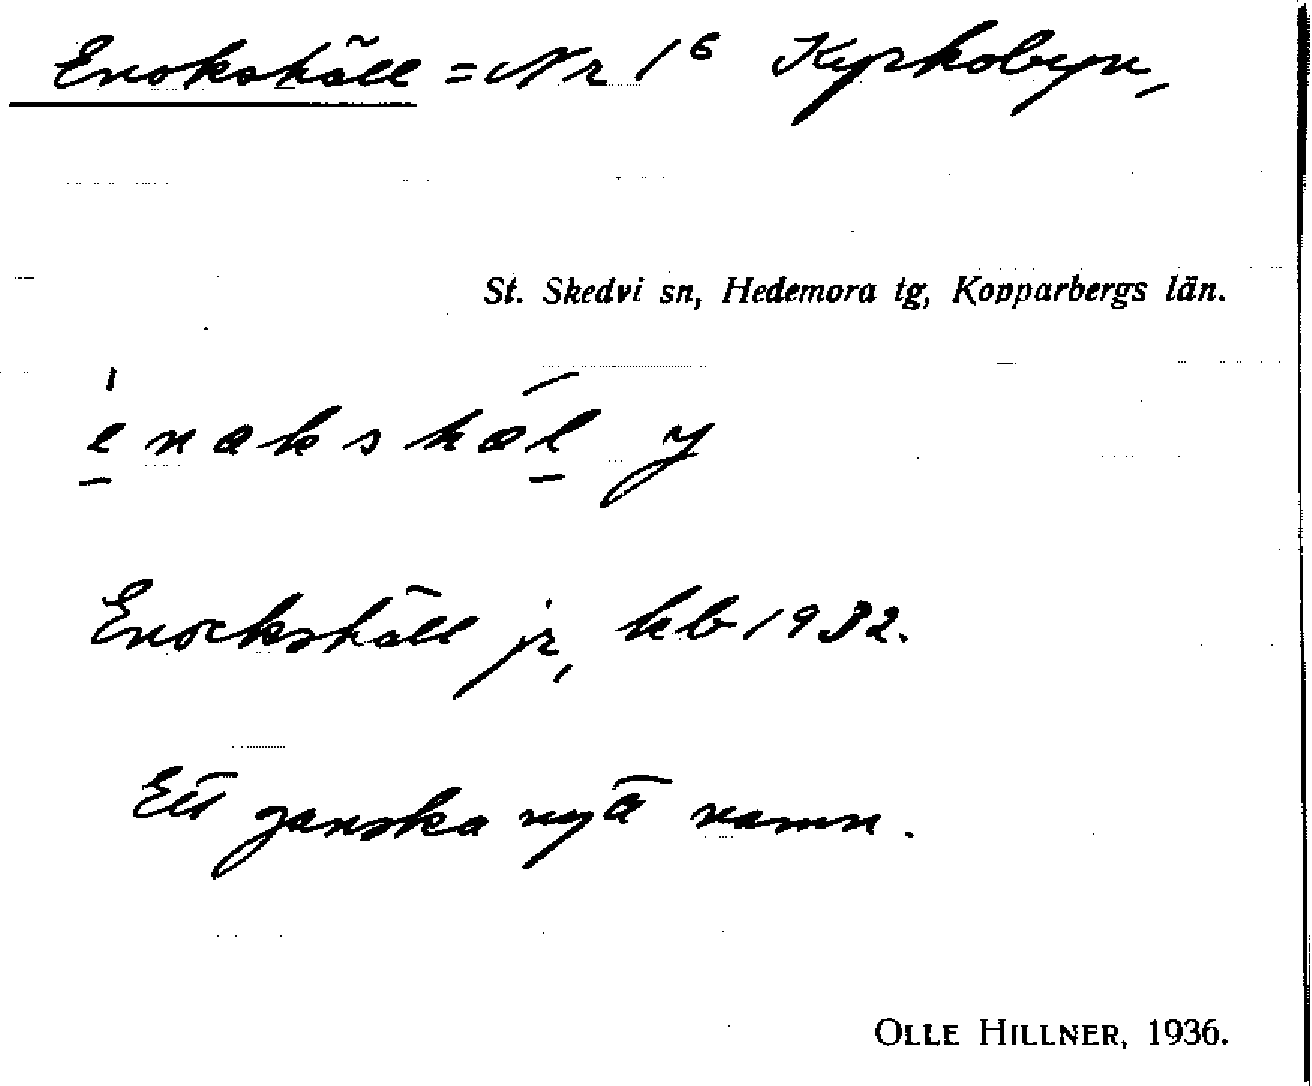 Enokshäll = Nr 1⁶ Kyrkobyn,
St. Skedvi sn, Hedemora tg, Kopparbergs län.
Enockshäll jr, kb 1932.
Ett ganska nytt namn.
OLLE HILLNER, 1936.